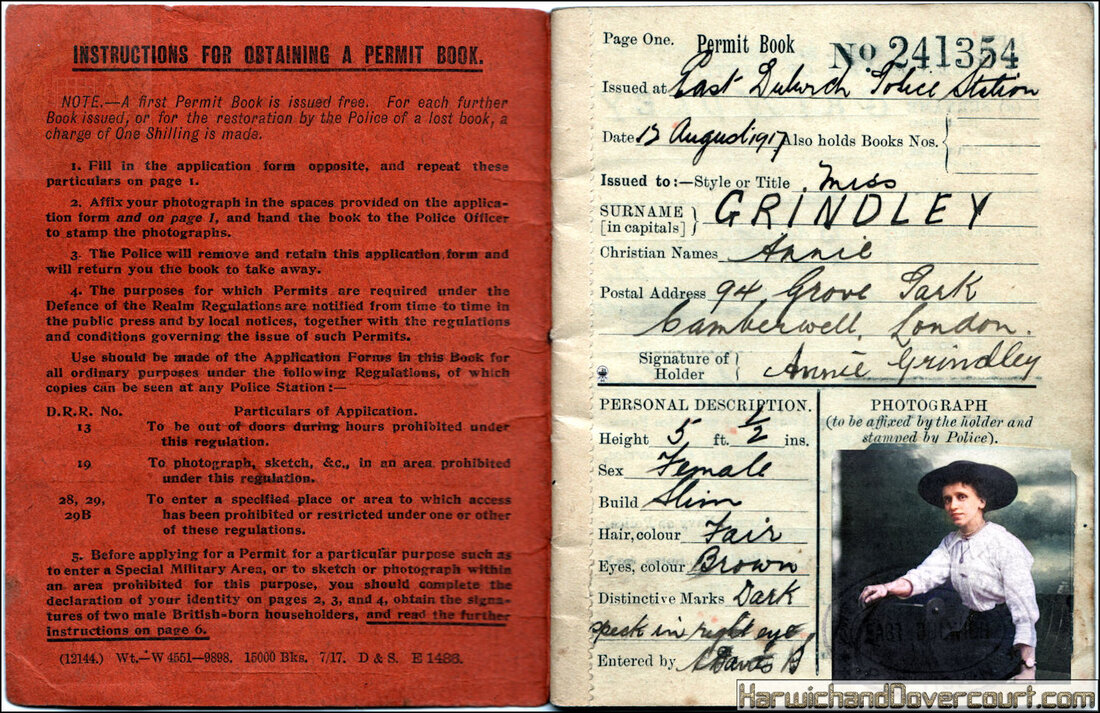 INSTRUCTIONS FOR OBTAINING A PERMIT BOOK.
NOTE.—A first Permit Book is issued free. For each further
Book issued, or for the restoration by the Police of a lost book, a
charge of One Shilling is made.
1. Fill in the application form opposite, and repeat these
particulars on page 1.
2. Affix your photograph in the spaces provided on the applica-
tion form and on page 1, and hand the book to the Police Officer
to stamp the photographs.
3. The Police will remove and retain this application form and
will return you the book to take away.
4. The purposes for which Permits are required under the
Defence of the Realm Regulations are notified from time to time in
the public press and by local notices, together with the regulations
and conditions governing the issue of such Permits.
Use should be made of the Application Forms in this Book for
all ordinary purposes under the following Regulations, of which
copies can be seen at any Police Station:—
D.R.R. No. Particulars of Application.
13 To be out of doors during hours prohibited under
this regulation.
19 To photograph, sketch, &c., in an area prohibited
under this regulation.
28, 29, To enter a specified place or area to which access
29B has been prohibited or restricted under one or other
of these regulations.
5. Before applying for a Permit for a particular purpose such as
to enter a Special Military Area, or to sketch or photograph within
an area prohibited for this purpose, you should complete the
declaration of your identity on pages 2, 3, and 4, obtain the signa-
tures of two male British-born householders, and read the further
instructions on page 6.
(12144.) Wt.—W 4551—9898. 15000 Bks. 7/17. D & S. E 1486.
Page One. Permit Book No. 241354
Issued at East Dulwich Police Station
Date 13 August 1917 Also holds Books Nos.
Issued to:—Style or Title Miss
SURNAME GRINDLEY
[in capitals]
Christian Names Annie
Postal Address 94 Grove Park
Camberwell, London.
Signature of Holder Annie Grindley
PERSONAL DESCRIPTION.
Height 5 ft. ½ ins.
Sex Female
Build Slim
Hair, colour Fair
Eyes, colour Brown
Distinctive Marks Dark
speck in right eye,
Entered by
PHOTOGRAPH
(to be affixed by the holder and
stamped by Police).
EAST DULWICH
HarwichandDovercourt.com